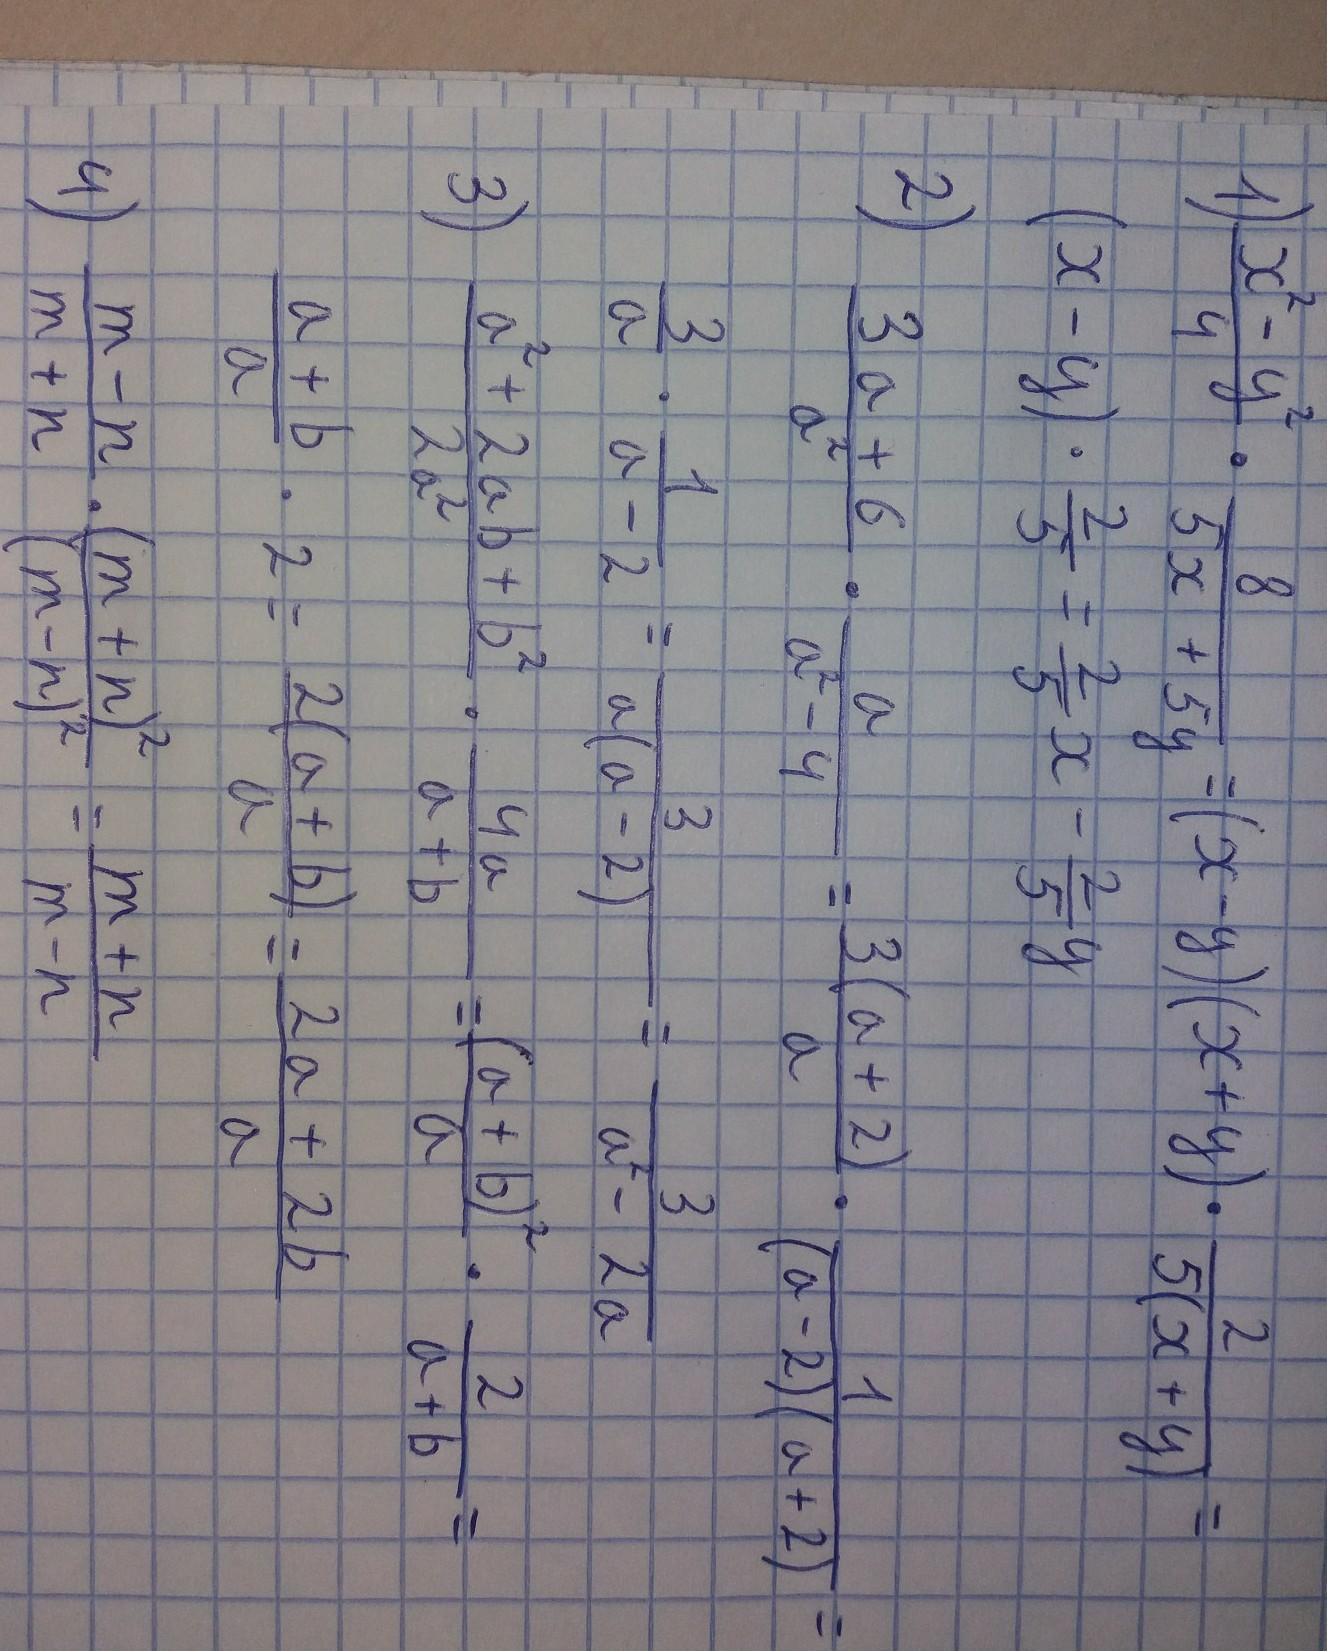 1) \frac{x^2-y^2}{4} \cdot \frac{8}{5x+5y} = (x-y)(x+y) \cdot \frac{2}{5(x+y)} =
(x-y) \cdot \frac{2}{5} = \frac{2}{5}x - \frac{2}{5}y
2) \frac{3a+6}{a^2} \cdot \frac{a}{a^2-4} = \frac{3(a+2)}{a} \cdot \frac{1}{(a-2)(a+2)} =
\frac{3}{a} \cdot \frac{1}{a-2} = \frac{3}{a(a-2)} = \frac{3}{a^2-2a}
3) \frac{a^2+2ab+b^2}{2a^2} \cdot \frac{4a}{a+b} = \frac{(a+b)^2}{a} \cdot \frac{2}{a+b} =
\frac{a+b}{a} \cdot 2 = \frac{2(a+b)}{a} = \frac{2a+2b}{a}
4) \frac{m-n}{m+n} \cdot \frac{(m+n)^2}{(m-n)^2} = \frac{m+n}{m-n}